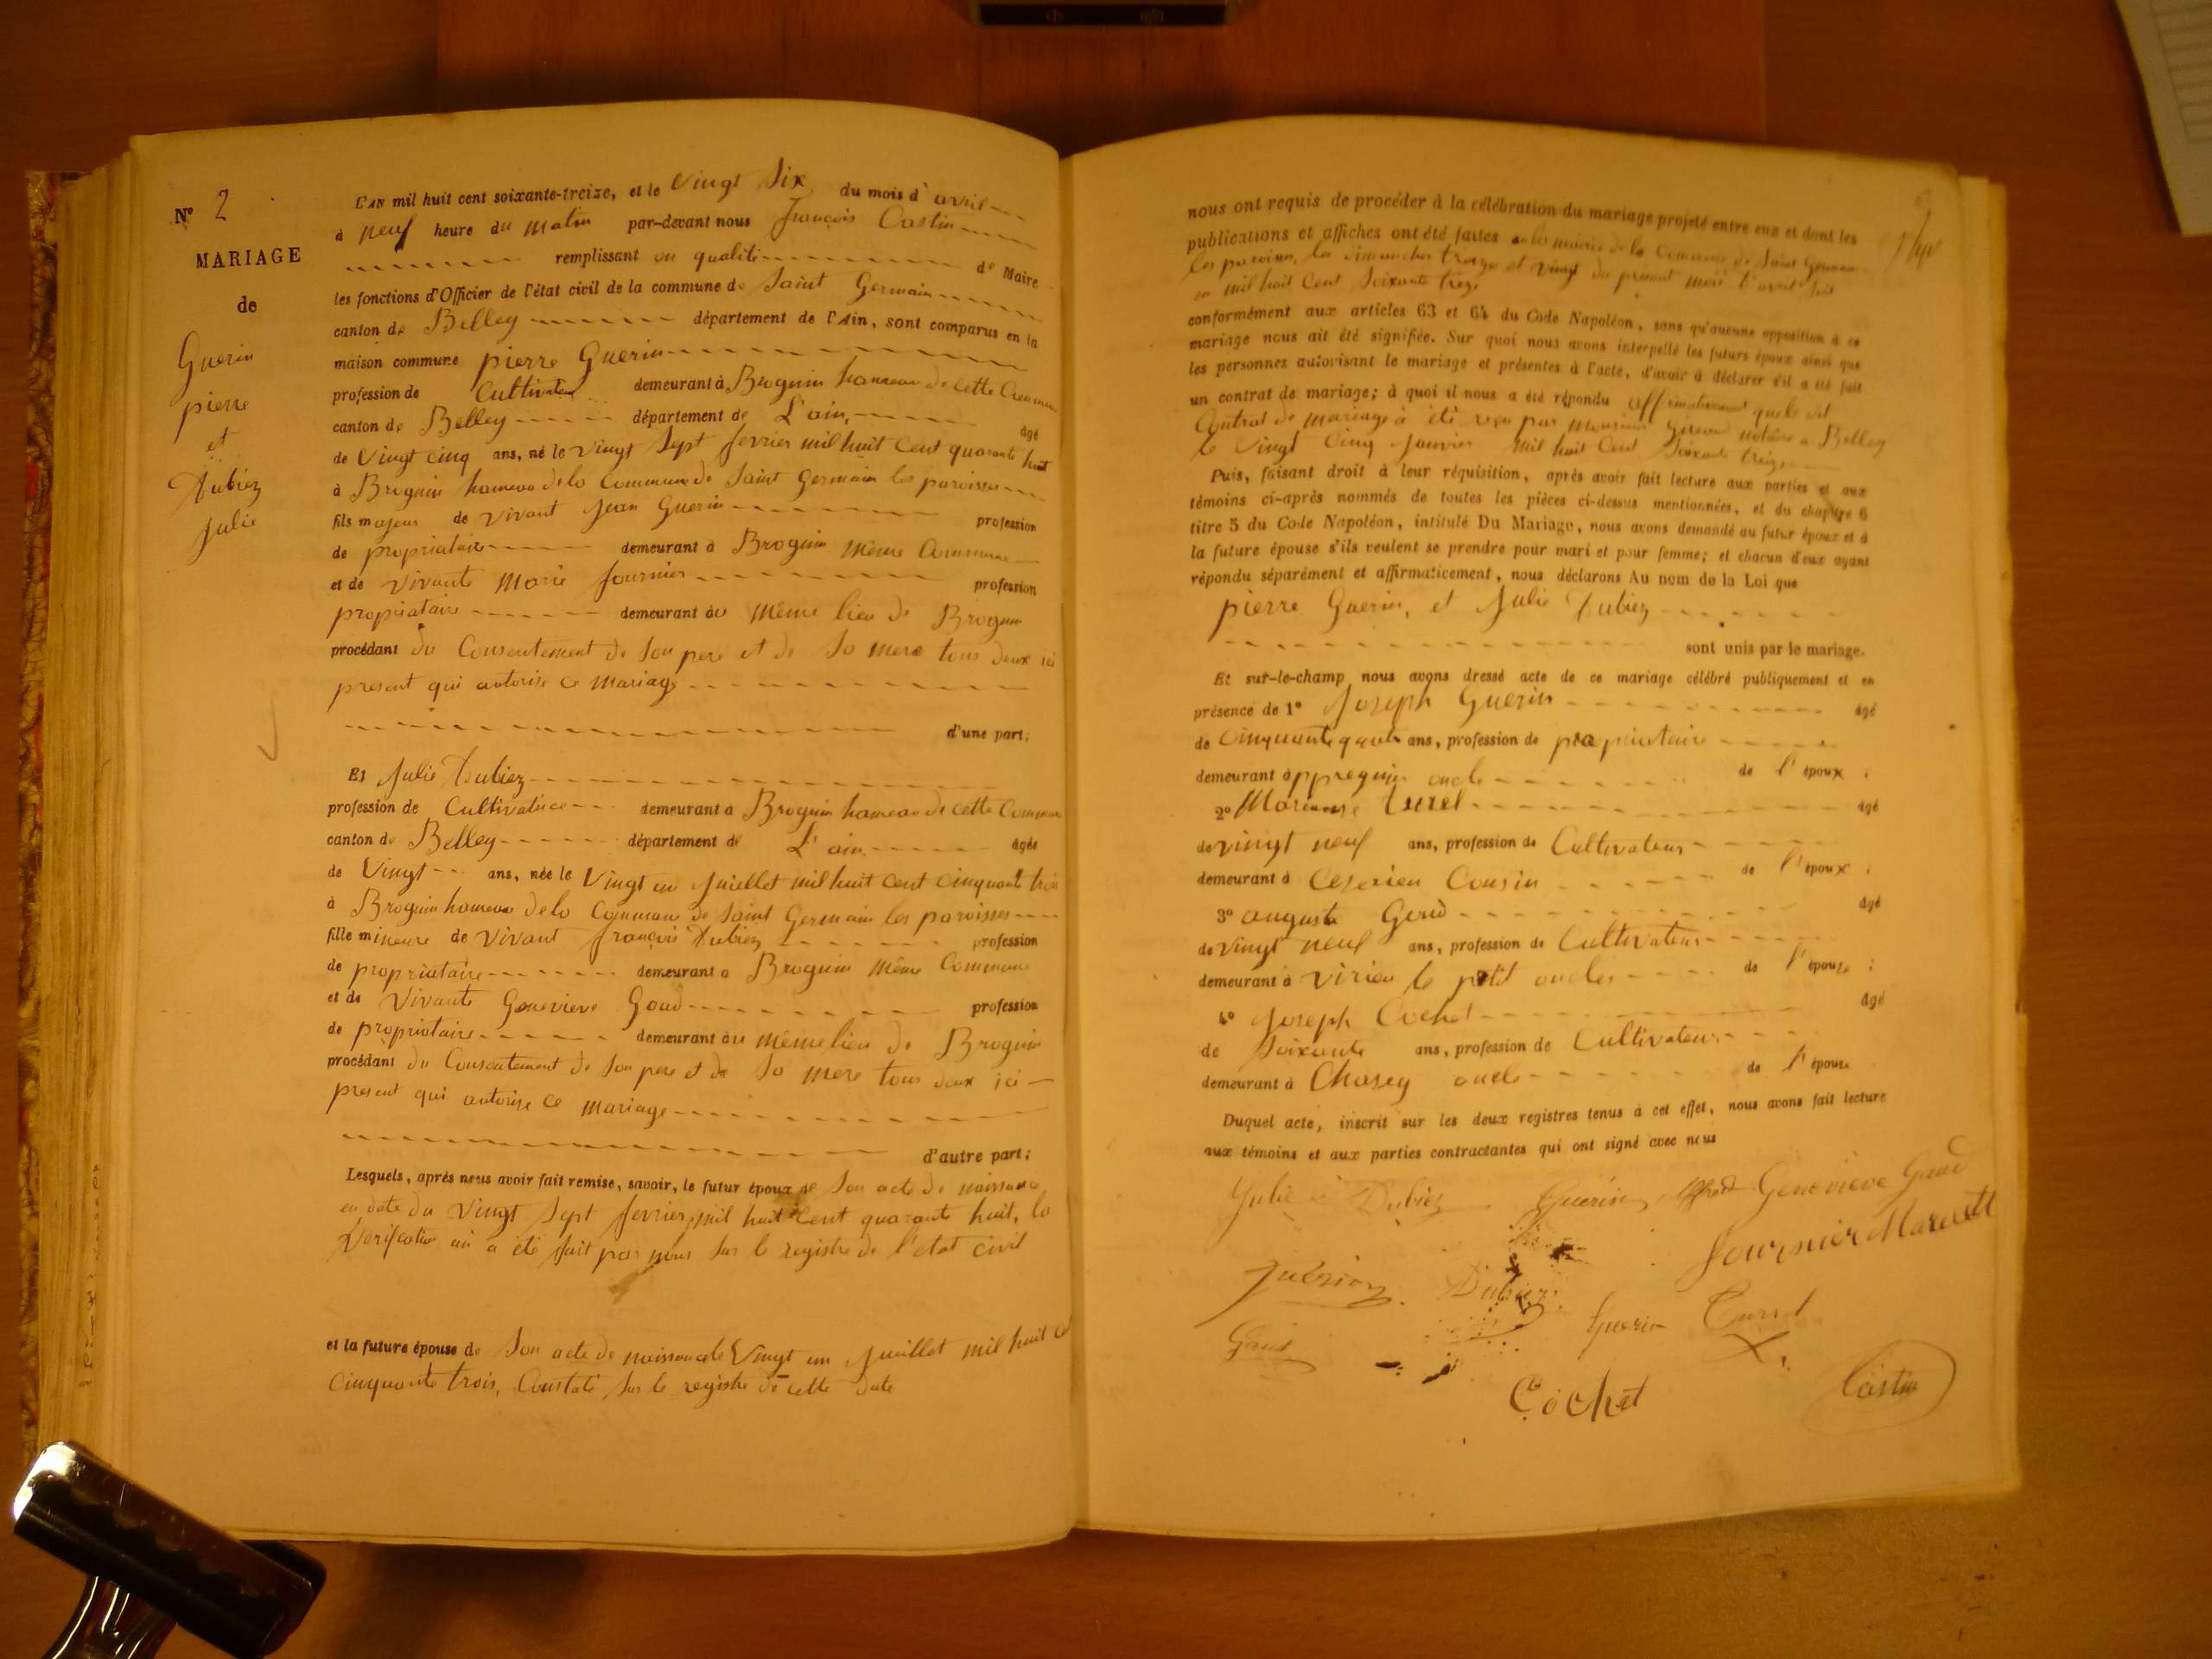 N° 2
MARIAGE
de
Guerin
pierre
et
Dubiez
Julie
L'AN mil huit cent soixante-treize, et le Vingt Six du mois d'avril
à neuf heure du matin par-devant nous François Castin
remplissant en qualité de Maire
les fonctions d'Officier de l'état civil de la commune de Saint Germain
canton de Belley département de l'Ain, sont comparus en la
maison commune pierre Guerin
profession de Cultivateur demeurant à Brognin hameau de cette Commune
canton de Belley département de L'ain, âgé
de Vingt cinq ans, né le Vingt Sept fevrier mil huit cent quarante huit
à Brognin hameau de la Commune de Saint Germain les paroisses
fils majeur de vivant Jean Guerin profession
de propriataire demeurant à Brognin même Commune
et de vivante Marie fournier profession
propriataire demeurant au même lieu de Brognin
procédant du Consentement de Son pere et de Sa mere tous deux ici
present qui autorise ce mariage
d'une part;
Et Julie Dubiez
profession de Cultivatrice demeurant a Brognin hameau de cette Commune
canton de Belley département de L'ain âgée
de Vingt ans, née le Vingt un Juiellet mil huit cent cinquante trois
à Brognin hameau de la Commune de Saint Germain les paroisses
fille mineure de vivant françois Dubiez profession
de propriataire demeurant a Brognin même Commune
et de Vivante Genevieve Goud profession
de propriataire demeurant au même lieu de Brognin
procédant du Consentement de Son pere et de Sa mere tous deux ici
present qui autorise ce mariage
d'autre part;
Lesquels, après nous avoir fait remise, savoir, le futur époux de Son acte de naissance
en date du Vingt Sept fevrier mil huit Cent quarante huit, la
Verification en a été fait par nous Sur le registre de l'etat civil
et la future épouse de Son acte de naissance le Vingt un Juiellet mil huit
Cinquante trois, Constaté Sur le registre de cette date
nous ont requis de procéder à la célébration du mariage projeté entre eux et dont les
publications et affiches ont été faites a la mairie de la Commune de Saint Germain
les paroisses, les dimanches treize et vingt du present mois d'avril
mil huit Cent Soixante treize
conformément aux articles 63 et 64 du Code Napoléon, sans qu'aucune opposition à ce
mariage nous ait été signifiée. Sur quoi nous avons interpellé les futurs époux ainsi que
les personnes autorisant le mariage et présentes à l'acte, d'avoir à déclarer s'il a été fait
un contrat de mariage; à quoi il nous a été répondu affirmativement que le dit
Contrat de mariage a été reçu par Monsieur notaire a Belley
le Vingt Cinq Janvier mil huit Cent Soixante treize
Puis, faisant droit à leur réquisition, après avoir fait lecture aux parties et aux
témoins ci-après nommés de toutes les pièces ci-dessus mentionnées, et du chapitre 6
titre 5 du Code Napoléon, intitulé Du Mariage, nous avons demandé au futur époux et à
la future épouse s'ils veulent se prendre pour mari et pour femme; et chacun d'eux ayant
répondu séparément et affirmativement, nous déclarons Au nom de la Loi que
pierre Guerin, et Julie Dubiez
sont unis par le mariage.
Et sur-le-champ nous avons dressé acte de ce mariage célébré publiquement et en
présence de 1° Joseph Guerin âgé
de Cinquante quatre ans, profession de propriataire
demeurant à oncle de l'époux ;
2° Turel âgé
de vingt neuf ans, profession de Cultivateur
demeurant à Ceserieu Cousin de l'époux ;
3° auguste Goud âgé
de vingt neuf ans, profession de Cultivateur
demeurant à virieu le petit oncles de l'épouse ;
4° Joseph Cochet âgé
de Soixante ans, profession de Cultivateur
demeurant à Chasey oncle de l'épouse
Duquel acte, inscrit sur les deux registres tenus à cet effet, nous avons fait lecture
aux témoins et aux parties contractantes qui ont signé avec nous
Julie Dubiez Guérin Genevieve Gaud
fournier
Dubiez
Guerin Turel
Cochet
Castin